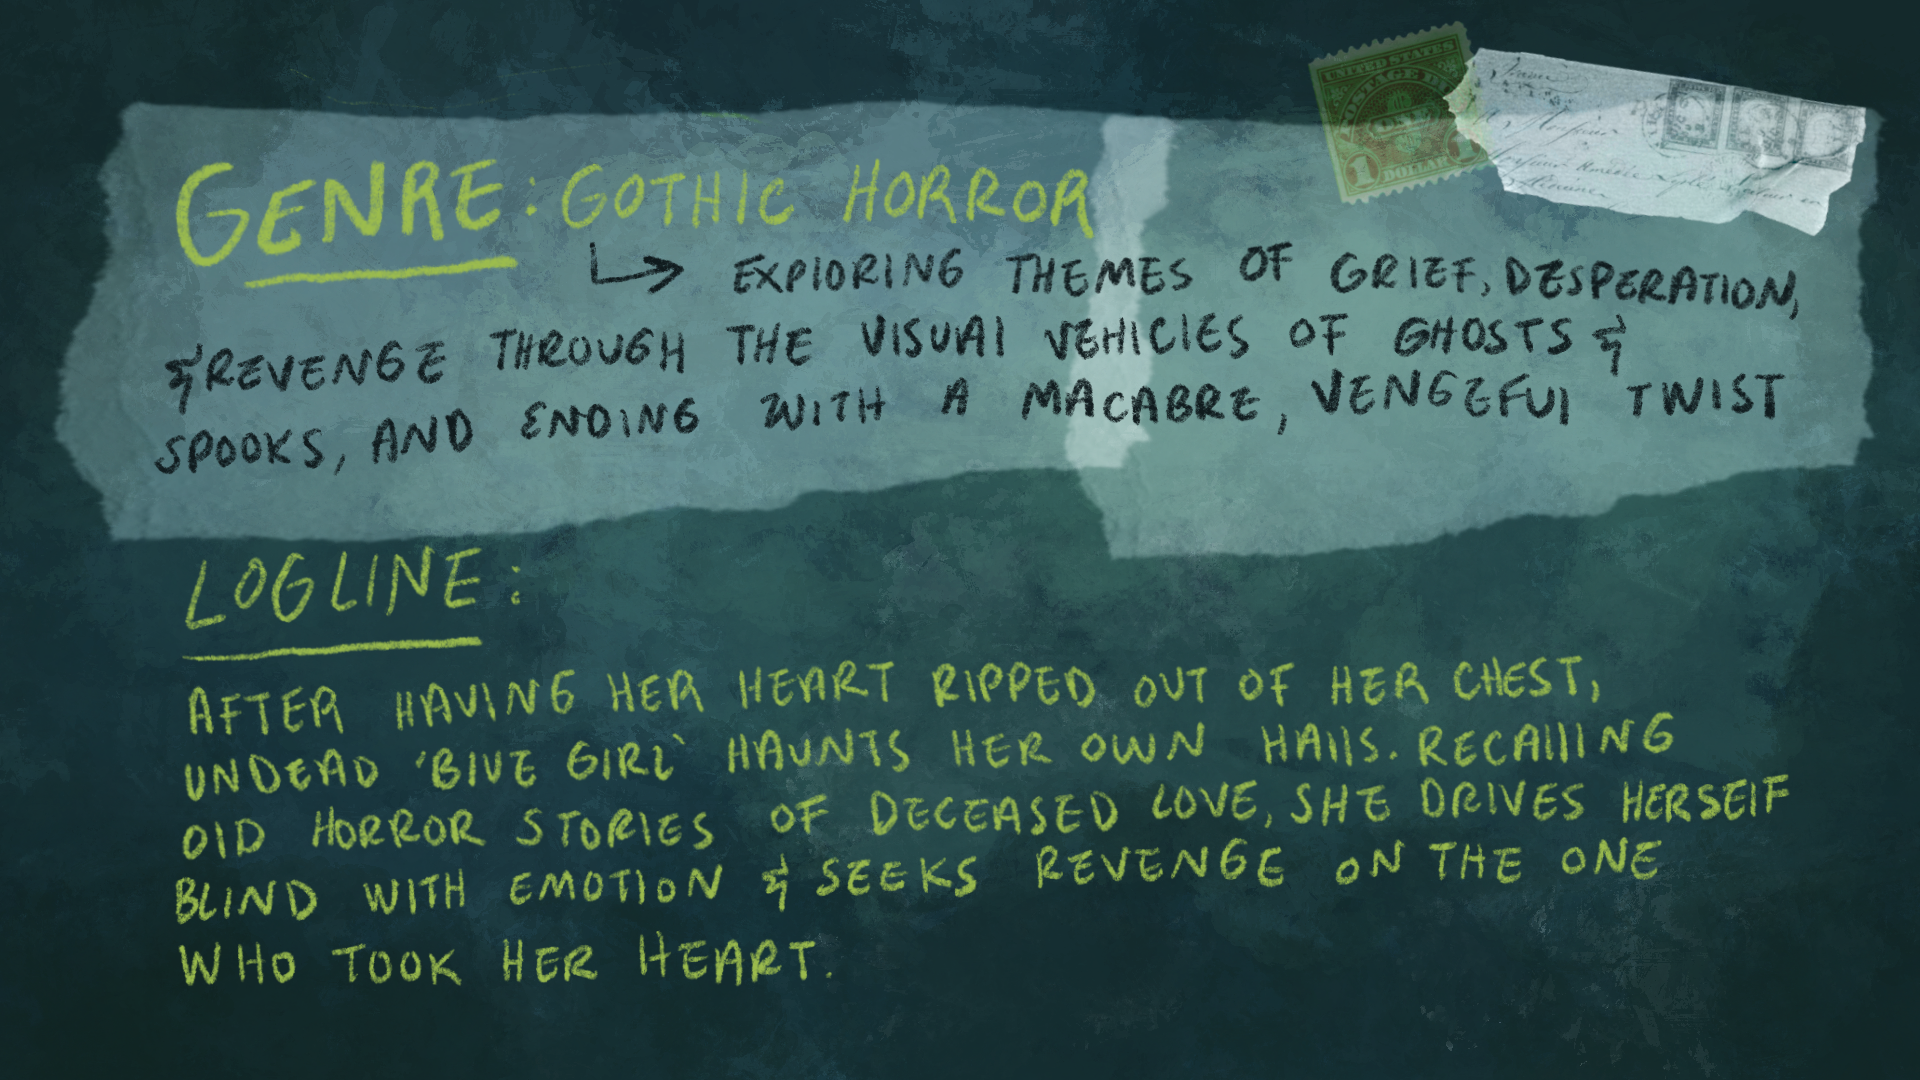 UNITED STATES
POSTAGE
ONE
1 DOLLAR 1
GENRE: GOTHIC HORROR
EXPLORING THEMES OF GRIEF, DESPERATION,
& REVENGE THROUGH THE VISUAL VEHICLES OF GHOSTS &
SPOOKS, AND ENDING WITH A MACABRE, VENGEFUL TWIST
LOGLINE:
AFTER HAVING HER HEART RIPPED OUT OF HER CHEST,
UNDEAD 'BLUE GIRL' HAUNTS HER OWN HALLS. RECALLING
OLD HORROR STORIES OF DECEASED LOVE, SHE DRIVES HERSELF
BLIND WITH EMOTION & SEEKS REVENGE ON THE ONE
WHO TOOK HER HEART.